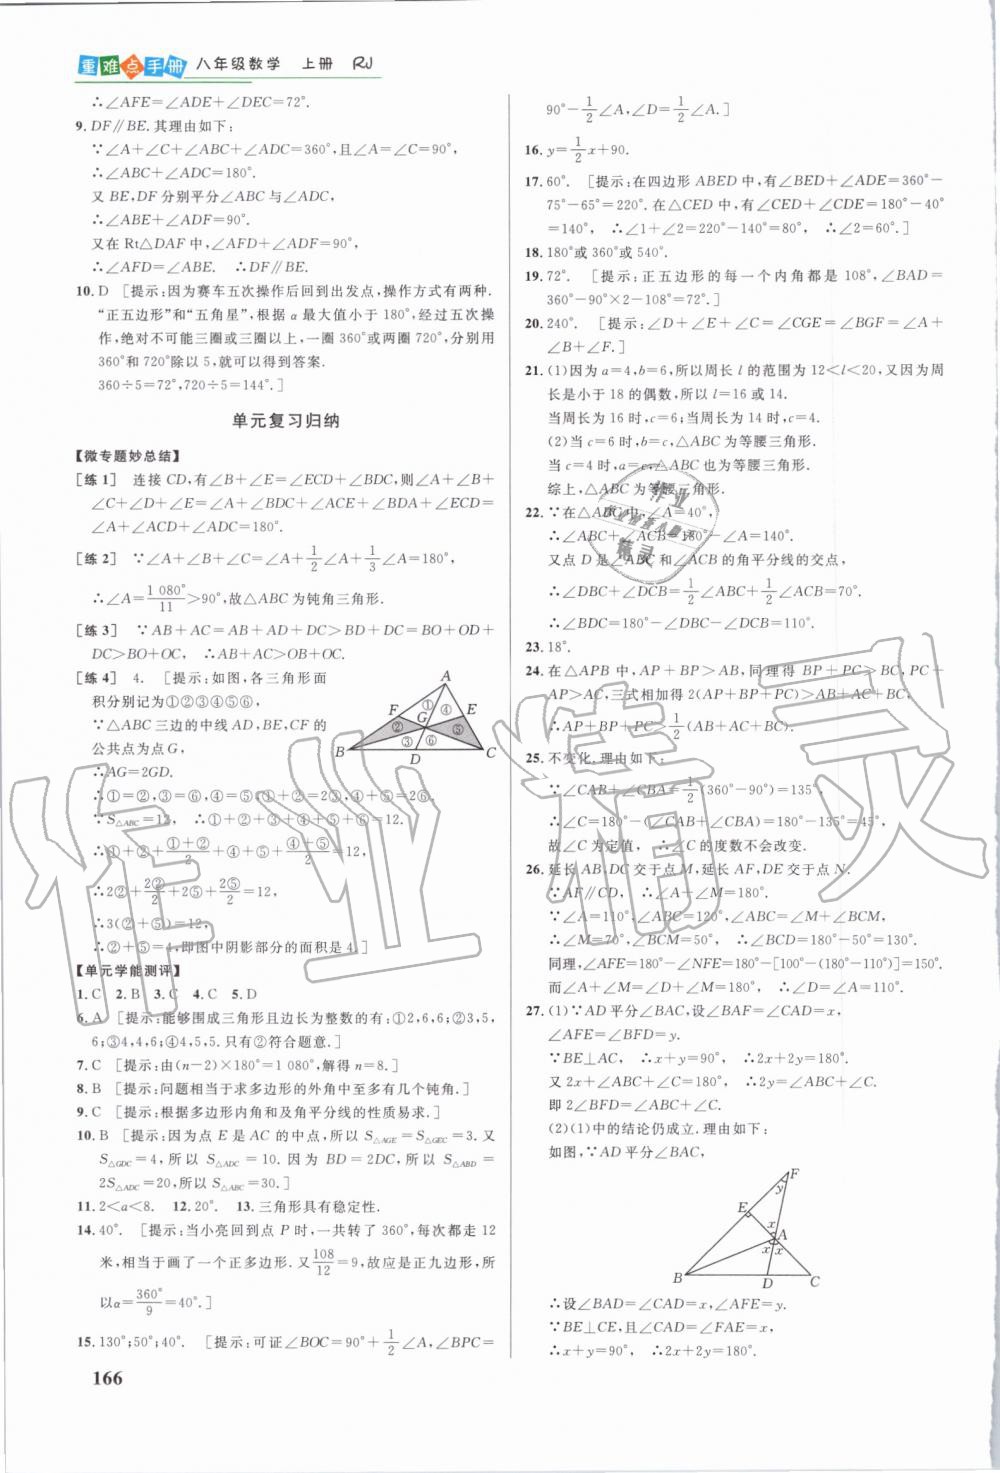 重难点手册 八年级数学 上册 RJ
∴∠AFE=∠ADE+∠DEC=72°.
9. DF∥BE.其理由如下:
∵∠A+∠C+∠ABC+∠ADC=360°,且∠A=∠C=90°,
∴∠ABC+∠ADC=180°.
又 BE,DF 分别平分∠ABC 与∠ADC,
∴∠ABE+∠ADF=90°.
又在 Rt△DAF 中,∠AFD+∠ADF=90°,
∴∠AFD=∠ABE. ∴DF∥BE.
10. D [提示:因为赛车五次操作后回到出发点,操作方式有两种.
“正五边形”和“五角星”,根据 α 最大值小于 180°,经过五次操
作,绝对不可能三圈或三圈以上,一圈 360°或两圈 720°,分别用
360°和 720°除以 5,就可以得到答案.
360÷5=72°,720÷5=144°.]
单元复习归纳
【微专题妙总结】
[练 1] 连接 CD,有∠B+∠E=∠ECD+∠BDC,则∠A+∠B
+∠C+∠D+∠E=∠A+∠BDC+∠ACE+∠BDA+∠ECD=
∠A+∠ACD+∠ADC=180°.
[练 2] ∵∠A+∠B+∠C=∠A+1/2∠A+1/3∠A=180°,
∴∠A=1 080°/11>90°,故△ABC 为钝角三角形.
[练 3] ∵AB+AC=AB+AD+DC>BD+DC=BO+OD+
DC>BO+OC, ∴AB+AC>OB+OC.
[练 4] 4. [提示:如图,各三角形面
积分别记为①②③④⑤⑥,
∵△ABC 三边的中线 AD,BE,CF 的
公共点为点 G,
∴AG=2GD.
∴①=②,③=⑥,④=⑤,①+②=2③,④+⑤=2⑥.
∵S△ABC=12, ∴①+②+③+④+⑤+⑥=12.
∴①+②+(①+②)/2+④+⑤+(④+⑤)/2=12,
∴2②+2②/2+2⑤+2⑤/2=12,
∴3(②+⑤)=12,
∴②+⑤=4,即图中阴影部分的面积是 4.]
A
F ① ④ E
② G ⑤
③ ⑥
B D C
【单元学能测评】
1. C 2. B 3. C 4. C 5. D
6. A [提示:能够围成三角形且边长为整数的有:①2,6,6;②3,5,
6;③4,4,6;④4,5,5.只有②符合题意.]
7. C [提示:由(n-2)×180°=1 080°,解得 n=8.]
8. B [提示:问题相当于求多边形的外角中至多有几个钝角.]
9. C [提示:根据多边形内角和及角平分线的性质易求.]
10. B [提示:因为点 E 是 AC 的中点,所以 S△AGE=S△GEC=3.又
S△GDC=4,所以 S△ADC=10.因为 BD=2DC,所以 S△ABD=
2S△ADC=20,所以 S△ABC=30.]
11. 2<a<8. 12. 20°. 13. 三角形具有稳定性.
14. 40°. [提示:当小亮回到点 P 时,一共转了 360°,每次都走 12
米,相当于画了一个正多边形.又108/12=9,故应是正九边形,所
以α=360°/9=40°.]
15. 130°;50°;40°. [提示:可证∠BOC=90°+1/2∠A,∠BPC=
166
90°-1/2∠A,∠D=1/2∠A.]
16. y=1/2x+90.
17. 60°. [提示:在四边形 ABED 中,有∠BED+∠ADE=360°-
75°-65°=220°.在△CED 中,有∠CED+∠CDE=180°-40°
=140°, ∴∠1+∠2=220°-140°=80°, ∴∠2=60°.]
18. 180°或 360°或 540°.
19. 72°. [提示:正五边形的每一个内角都是 108°,∠BAD=
360°-90°×2-108°=72°.]
20. 240°. [提示:∠D+∠E+∠C=∠CGE=∠BGF=∠A+
∠B+∠F.]
21. (1)因为 a=4,b=6,所以周长 l 的范围为 12<l<20,又因为周
长是小于 18 的偶数,所以 l=16 或 14.
当周长为 16 时,c=6;当周长为 14 时,c=4.
(2)当 c=6 时,b=c,△ABC 为等腰三角形.
当 c=4 时,a=c,△ABC 为等腰三角形.
综上,△ABC 为等腰三角形.
22. ∵在△ABC 中,∠A=40°,
∴∠ABC+∠ACB=180°-∠A=140°.
又点 D 是∠ABC 和∠ACB 的角平分线的交点,
∴∠DBC+∠DCB=1/2∠ABC+1/2∠ACB=70°.
∴∠BDC=180°-∠DBC-∠DCB=110°.
23. 18°.
24. 在△APB 中,AP+BP>AB,同理得 BP+PC>BC,PC+
AP>AC,三式相加得 2(AP+BP+PC)>AB+AC+BC,
∴AP+BP+PC>1/2(AB+AC+BC).
25. 不变化.理由如下:
∵∠CAB+∠CBA=1/2(360°-90°)=135°,
∴∠C=180°-(∠CAB+∠CBA)=180°-135°=45°.
故∠C 为定值, ∴∠C 的度数不会改变.
26. 延长 AB,DC 交于点 M,延长 AF,DE 交于点 N.
∵AF∥CD, ∴∠A+∠M=180°.
∵∠A=110°,∠ABC=120°,∠ABC=∠M+∠BCM,
∴∠M=70°,∠BCM=50°, ∴∠BCD=130°.
同理,∠AFE=180°-∠NFE=180°-[∠E-(180°-∠A)]=150°.
而∠A+∠M=∠D+∠M=180°, ∴∠A=∠D=110°.
27. (1)∵AD 平分∠BAC,设∠BAF=∠CAD=x,
∠AFE=∠BFD=y.
∵BE⊥AC, ∴x+y=90°, ∴2x+2y=180°.
又 2x+∠ABC+∠C=180°, ∴2y=∠ABC+∠C.
即 2∠BFD=∠ABC+∠C.
(2)(1)中的结论仍成立.理由如下:
如图,∵AD 平分∠BAC,
F
y
E
x A
x x
B D C
∴设∠BAD=∠CAD=x,∠AFE=y.
∵BE⊥CE,且∠CAD=∠FAE=x,
∴x+y=90°, ∴2x+2y=180°.
作业精灵